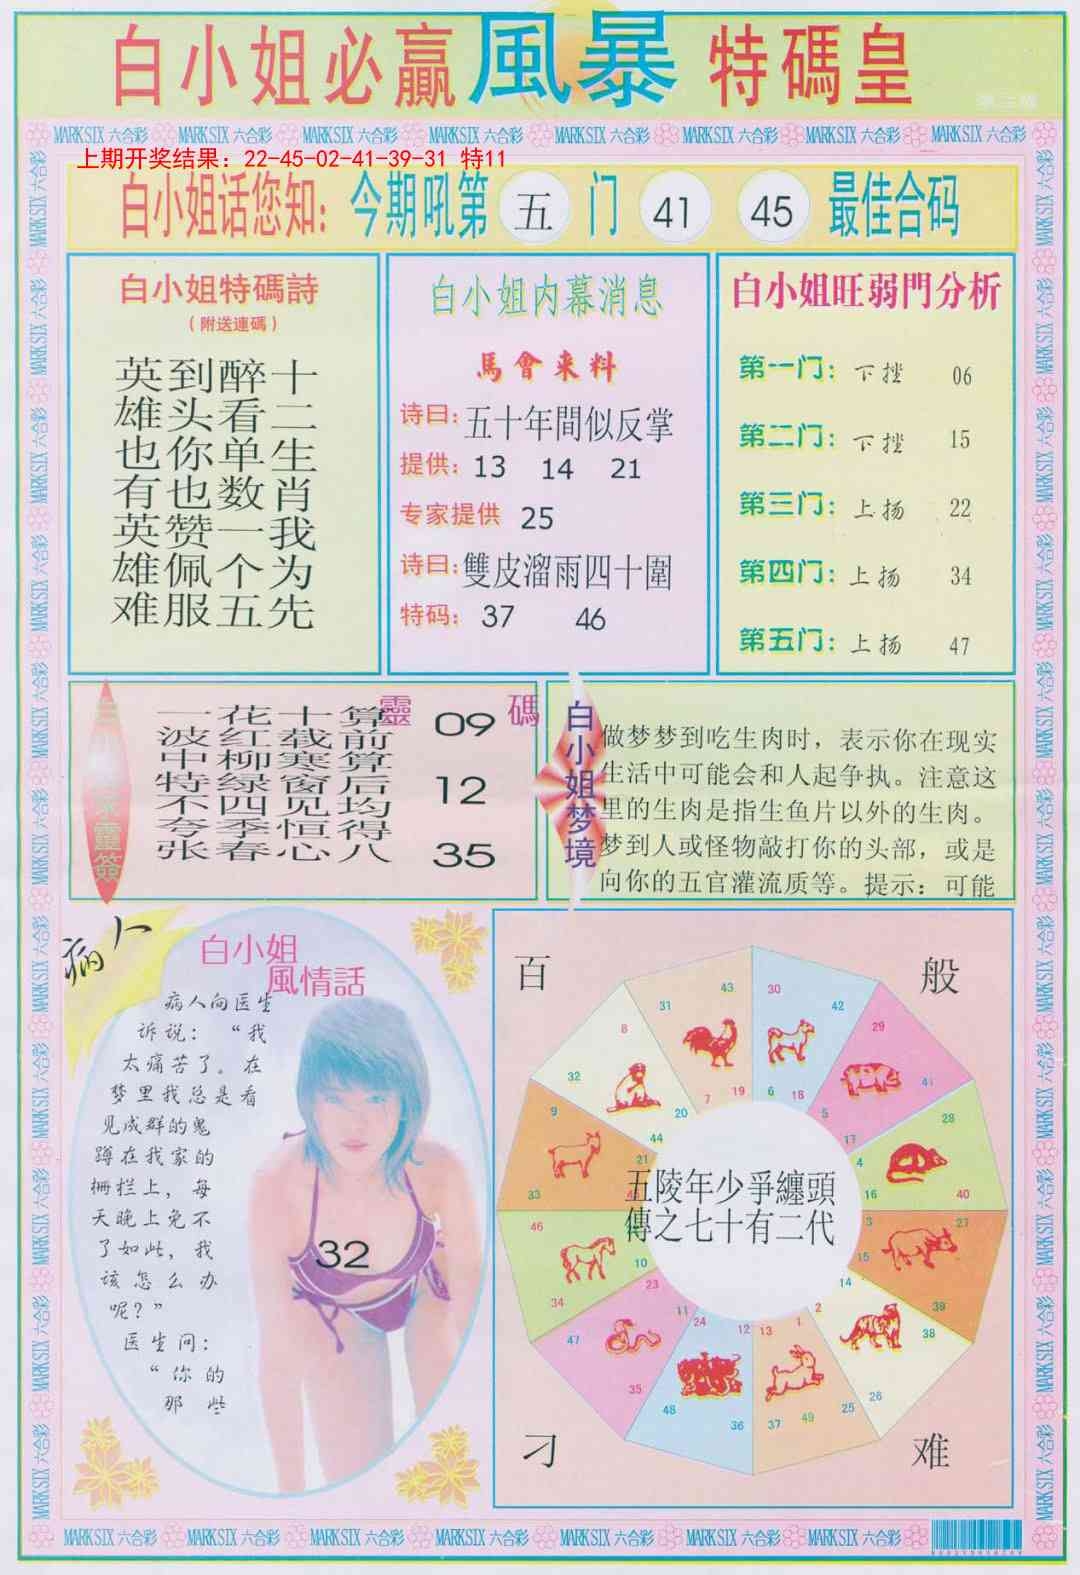 白小姐必贏風暴特碼皇
第三版
MARK SIX 六合彩 MARK SIX 六合彩 MARK SIX 六合彩 MARK SIX 六合彩 MARK SIX 六合彩 MARK SIX 六合彩 MARK SIX 六合彩 MARK SIX 六合彩
上期开奖结果：22-45-02-41-39-31 特11
白小姐话您知：今期吼第 五 门 41 45 最佳合码
白小姐特碼詩
（附送連碼）
十二生肖我为先
醉看单数一个五
到头你也赞佩服
英雄也有英雄难
白小姐内幕消息
馬會来料
诗曰：五十年間似反掌
提供：13 14 21
专家提供 25
诗曰：雙皮溜雨四十圍
特码：37 46
白小姐旺弱門分析
第一门：下挫 06
第二门：下挫 15
第三门：上扬 22
第四门：上扬 34
第五门：上扬 47
靈碼
算前算后均得八
十载寒窗见恒心
花红柳绿四季春
一波中特不夸张
09
12
35
白小姐梦境
做梦梦到吃生肉时，表示你在现实
生活中可能会和人起争执。注意这
里的生肉是指生鱼片以外的生肉。
梦到人或怪物敲打你的头部，或是
向你的五官灌流质等。提示：可能
病人
白小姐
風情話
病人向医生
诉说：“我
太痛苦了。在
梦里我总是看
见成群的鬼
蹲在我家的
栅栏上，每
天晚上免不
了如此，我
该怎么办
呢？”
医生问：
“你的
那些
32
百般刁难
五陵年少爭纏頭
傳之七十有二代
30 42 6 18
29 41 5 17
28 40 4 16
27 39 3 15
14 2 38 26
1 13 25 37 49
12 24 36 48
11 23 35 47
10 34 46
9 21 33 45
8 20 32 44
7 19 31 43
MARK SIX 六合彩 MARK SIX 六合彩 MARK SIX 六合彩 MARK SIX 六合彩 MARK SIX 六合彩 MARK SIX 六合彩 MARK SIX 六合彩